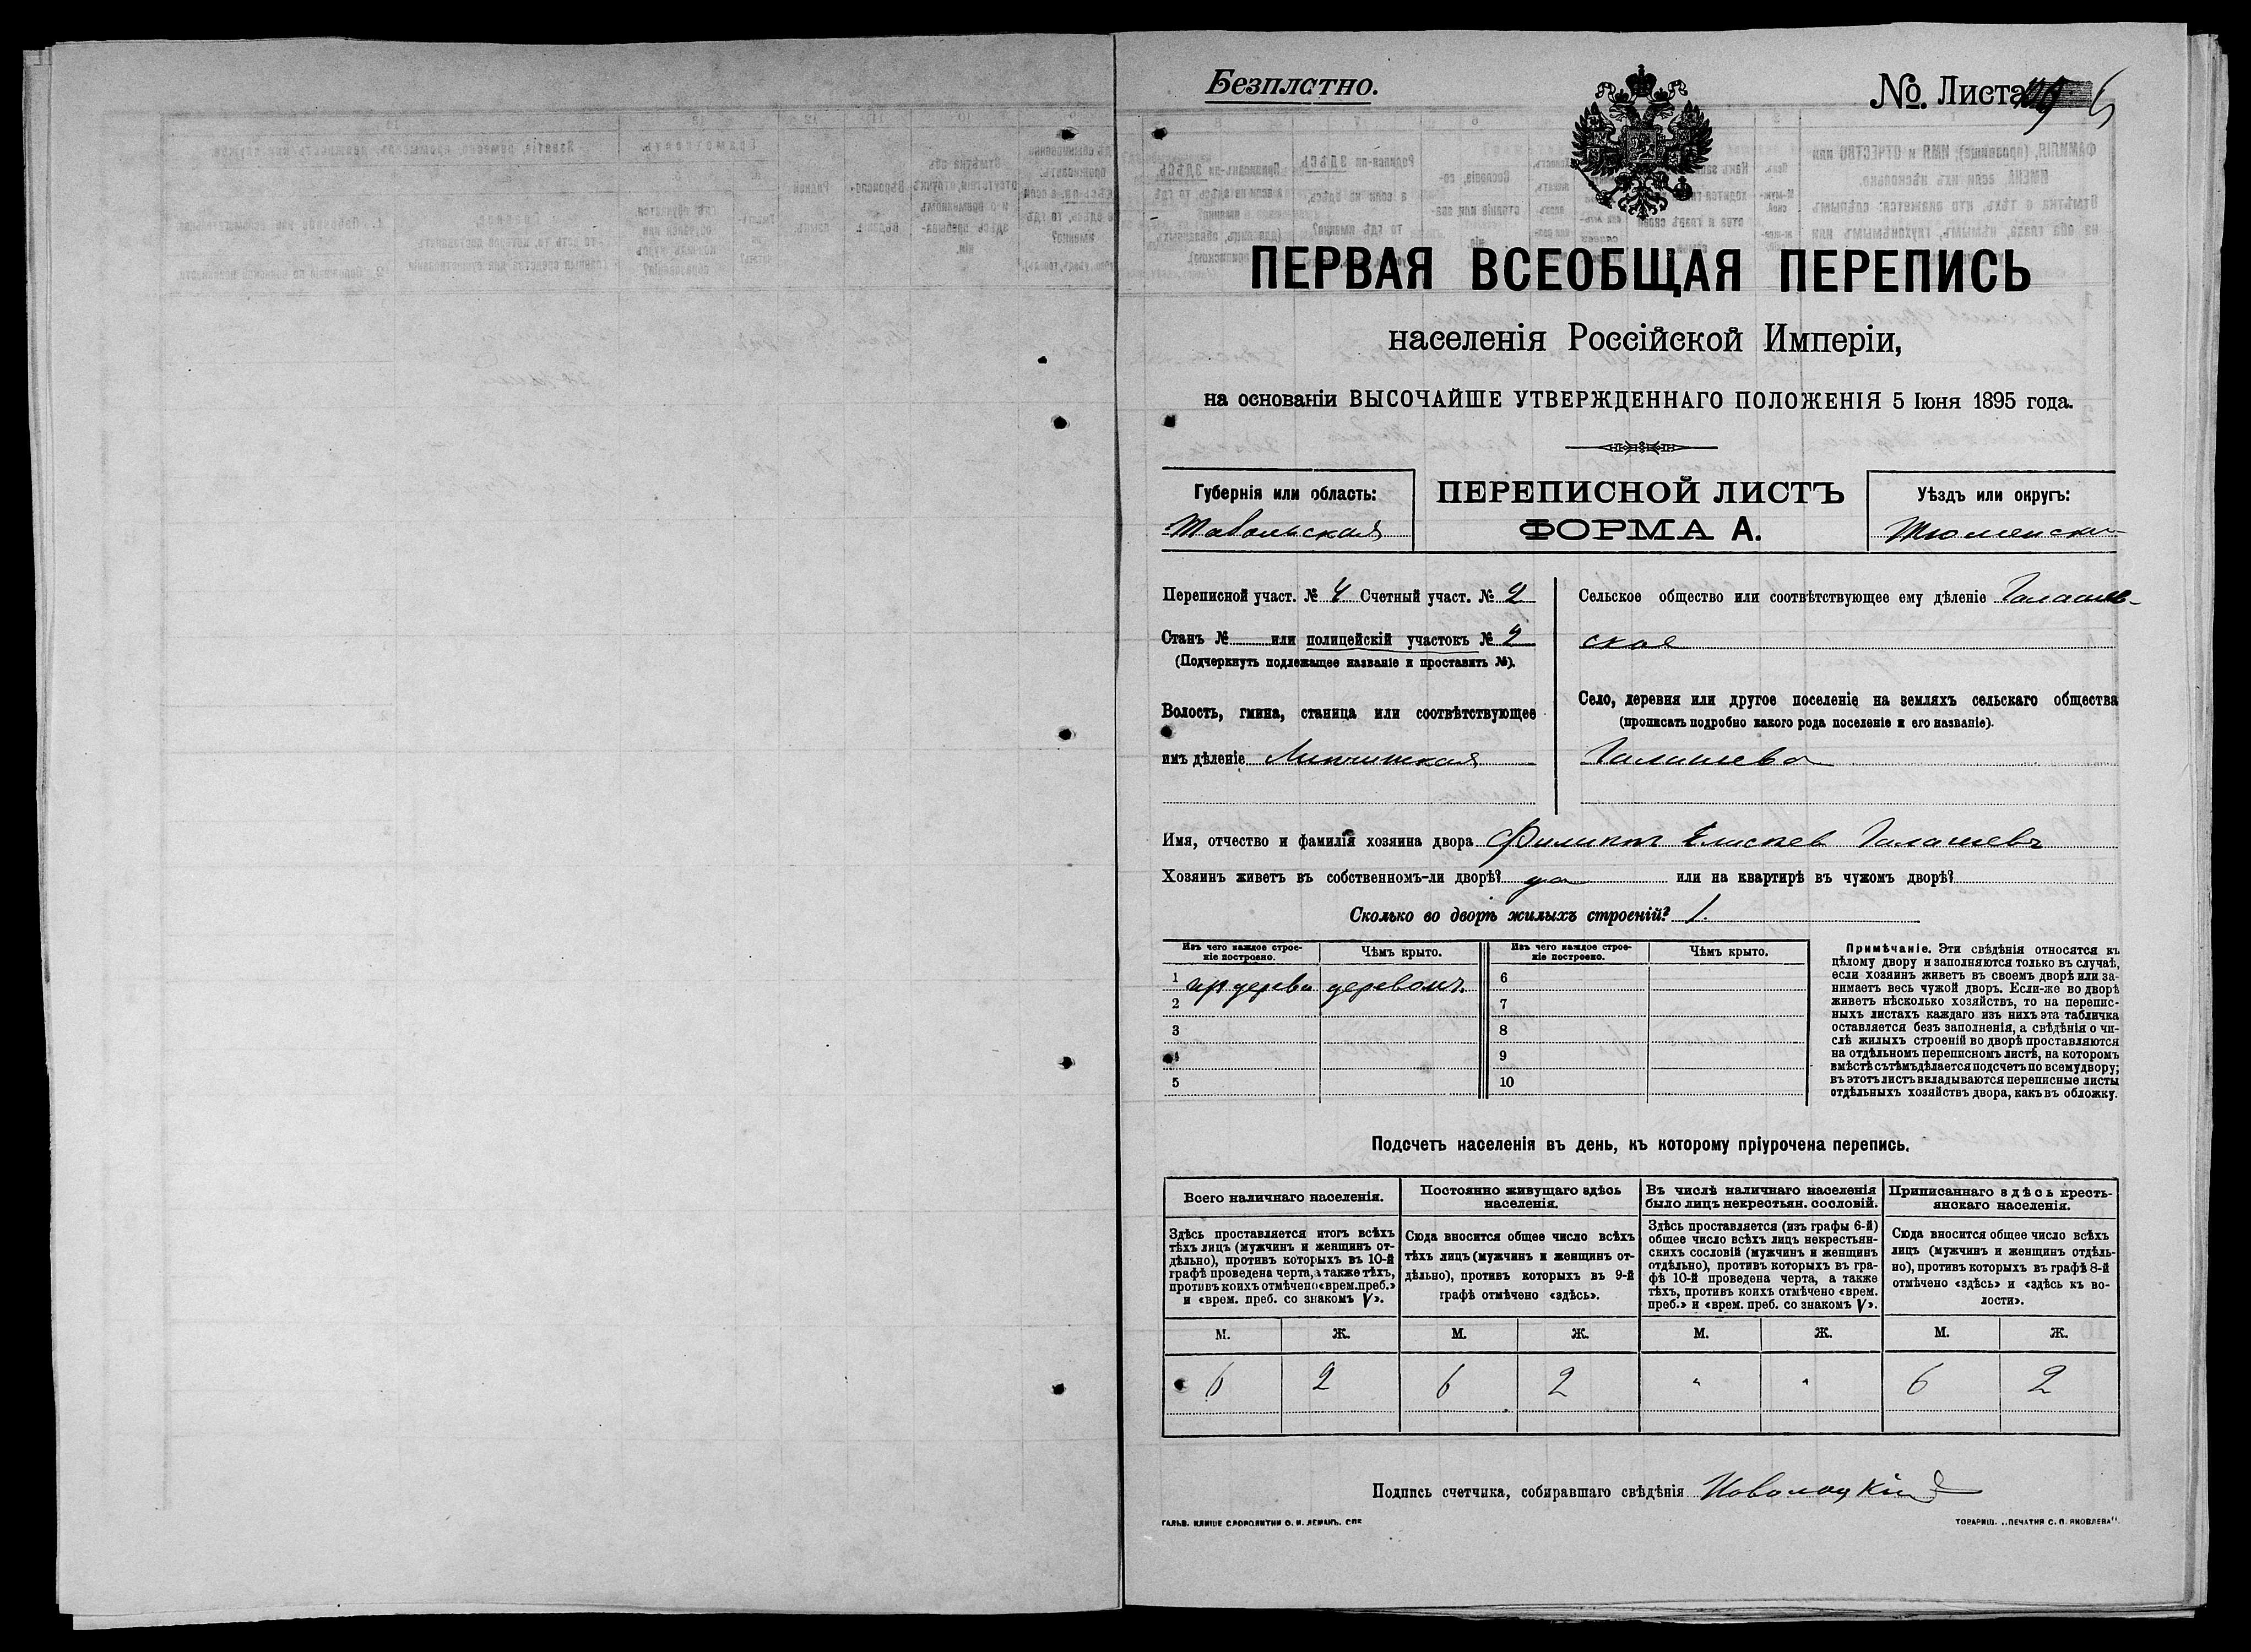 Безплатно.
№ Листа 6
ПЕРВАЯ ВСЕОБЩАЯ ПЕРЕПИСЬ
населенія Россійской Имперіи,
на основаніи ВЫСОЧАЙШЕ УТВЕРЖДЕННАГО ПОЛОЖЕНІЯ 5 Іюня 1895 года.
Губернія или область:
Тобольская
ПЕРЕПИСНОЙ ЛИСТЪ
ФОРМА А.
Уѣздъ или округъ:
Тюменскій
Переписной участ. № 4 Счетный участ. № 2
Станъ № или полицейскій участокъ № 2
(Подчеркнуть подлежащее названіе и проставить №).
Волость, гмина, станица или соотвѣтствующее
имъ дѣленіе Липчинская
Сельское общество или соотвѣтствующее ему дѣленіе Галашев-
ское
Село, деревня или другое поселеніе на земляхъ сельскаго общества
(прописать подробно какого рода поселеніе и его названіе).
Галашева
Имя, отчество и фамилія хозяина двора Филипъ Елисеев Галашевъ
Хозяинъ живетъ въ собственномъ-ли дворѣ? да или на квартирѣ въ чужомъ дворѣ?
Сколько во дворѣ жилыхъ строеній? 1.
Изъ чего каждое строе-
ніе построено.
Чѣмъ крыто.
Изъ чего каждое строе-
ніе построено.
Чѣмъ крыто.
1 из дерева деревомъ. 6
2 7
3 8
4 9
5 10
Примѣчаніе. Эти свѣдѣнія относятся къ
цѣлому двору и заполняются только въ случаѣ,
если хозяинъ живетъ въ своемъ дворѣ или за-
нимаетъ весь чужой дворъ. Если-же во дворѣ
живетъ нѣсколько хозяйствъ, то на перепис-
ныхъ листахъ каждаго изъ нихъ эта табличка
оставляется безъ заполненія, а свѣдѣнія о чи-
слѣ жилыхъ строеній во дворѣ проставляются
на отдѣльномъ переписномъ листѣ, на которомъ
вмѣстѣ съ тѣмъ дѣлается подсчетъ по всему двору;
въ этотъ листъ вкладываются переписные листы
отдѣльныхъ хозяйствъ двора, какъ въ обложку.
Подсчетъ населенія въ день, къ которому пріурочена перепись.
Всего наличнаго населенія.
Здѣсь проставляется итогъ всѣхъ
тѣхъ лицъ (мужчинъ и женщинъ от-
дѣльно), противъ которыхъ въ 10-й
графѣ проведена черта, а также тѣхъ,
противъ коихъ отмѣчено «врем. преб.»
и «врем. преб. со знакомъ V».
Постоянно живущаго здѣсь
населенія.
Сюда вносится общее число всѣхъ
тѣхъ лицъ (мужчинъ и женщинъ от-
дѣльно), противъ которыхъ въ 9-й
графѣ отмѣчено «здѣсь».
Въ числѣ наличнаго населенія
было лицъ некрестьян. сословій.
Здѣсь проставляется (изъ графы 6-й)
общее число всѣхъ лицъ некрестьян-
скихъ сословій (мужчинъ и женщинъ
отдѣльно), противъ которыхъ въ гра-
фѣ 10-й проведена черта, а также
тѣхъ, противъ коихъ отмѣчено «врем.
преб.» и «врем. преб. со знакомъ V».
Приписаннаго здѣсь кресть-
янскаго населенія.
Сюда вносится общее число всѣхъ
лицъ (мужчинъ и женщинъ отдѣль-
но), противъ которыхъ въ графѣ 8-й
отмѣчено «здѣсь» и «здѣсь къ во-
лости».
М. Ж. М. Ж. М. Ж. М. Ж.
6 2 6 2 " " 6 2
Подпись счетчика, собиравшаго свѣдѣнія
ГАЛЬВ. КЛИШЕ СЛОВОЛИТНИ О. И. ЛЕМАНЪ. СПБ
ТОВАРИЩ. „ПЕЧАТНЯ С. П. ЯКОВЛЕВА".